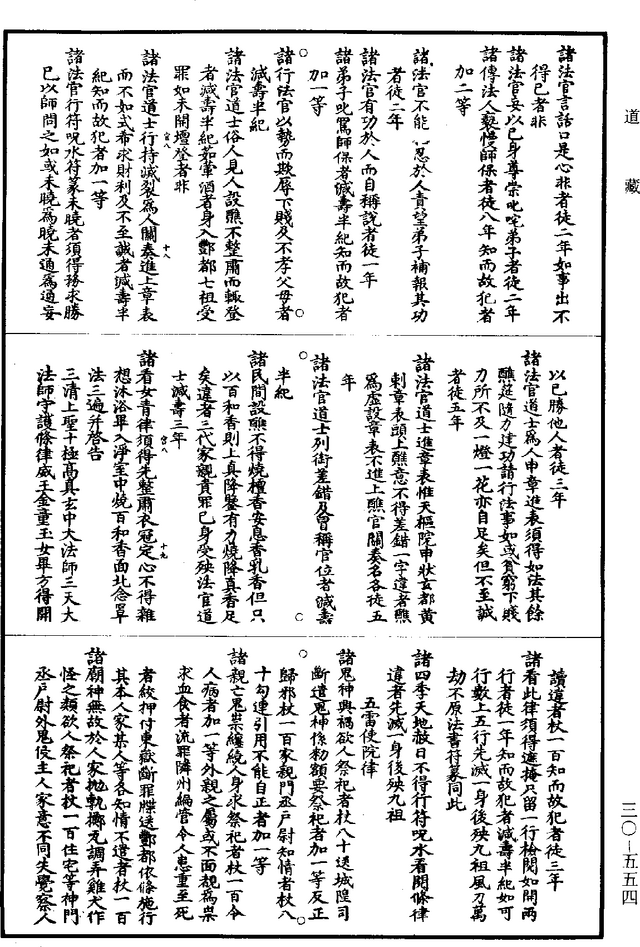 道藏
諸法官言話口是心非者徒二年如事出不
得已者非
諸法官妄以己身尊崇叱咤弟子者徒二年
諸傳法人褻慢師保者徒八年知而故犯者
加二等
諸法官不能忍於人責望弟子補報其功
者徒二年
諸法官有功於人而自稱說者徒一年
諸弟子叱罵師保者減壽半紀知而故犯者
加一等
諸行法官以勢而欺辱下賤及不孝父母者
減壽半紀
諸法官道士俗人見人設醮不整肅而輒登
者減壽半紀茹葷酒者身入酆都七祖受
罪如未開壇登者非
諸法官道士行持滅裂為人關奏進上章表
而不如式希求財利及不至誠者減壽半
紀知而故犯者加一等
諸法官行符呪水符篆未曉者須得務求勝
已以師問之如或未曉為曉未通為通妄
以已勝他人者徒三年
諸法官道士為人申章進表須得如法其餘
醮筵隨力建功請行法事如或貧窮下賤
力所不及一燈一花亦自足矣但不至誠
者徒五年
諸法官道士進章表惟天樞院申狀玄都黃
剌章表頭上醮意不得差錯一字違者醮
為虛設章表不進上醮官關奏名各徒五
年
諸法官道士列銜差錯及冒稱官位者減壽
半紀
諸民間設醮不得燒檀香安息香乳香但只
以百和香則上真降鑒有力燒降真香足
矣違者三代家親責罪已身受殃法官道
士減壽三年
諸看女青律須得先整肅衣冠定心不得雜
想沐浴畢入淨室中燒百和香面北念罩
法三遍并啓告
三清上聖十極高真玄中大法師三天大
法師守護條律威王金童玉女畢方得開
讀違者杖一百知而故犯者徒三年
諸看此律須得遮掩只留一行檢閱如開兩
行者徒一年知而故犯者減壽半紀如可
行數上五行先滅一身後殃九祖風刀萬
劫不原法書符篆同此
諸四季天地赦日不得行符呪水看閱條律
違者先滅一身後殃九祖
五雷使院律
諸鬼神興禍欲人祭祀者杖八十逐城隍司
斷遣鬼神係勑額要祭祀者加一等反正
歸邪杖一百家親門丞戶尉知情者杖八
十勾連引用不能自正者加一等
諸親亡鬼祟纏繞人身求祭祀者杖一百令
人病者加一等外親之屬或不面親為祟
求血食者流罪隣州編管令人患重至死
者絞押付東嶽斷罪牒送酆都依條施行
其本人家某人等各知情不遣者杖一百
諸廟神無故於人家拋甎擲瓦調弄雞犬作
怪之類欲人祭祀者杖一百住宅等神門
丞戶尉外鬼伎主人家意不同失覺察人
三〇—五五四